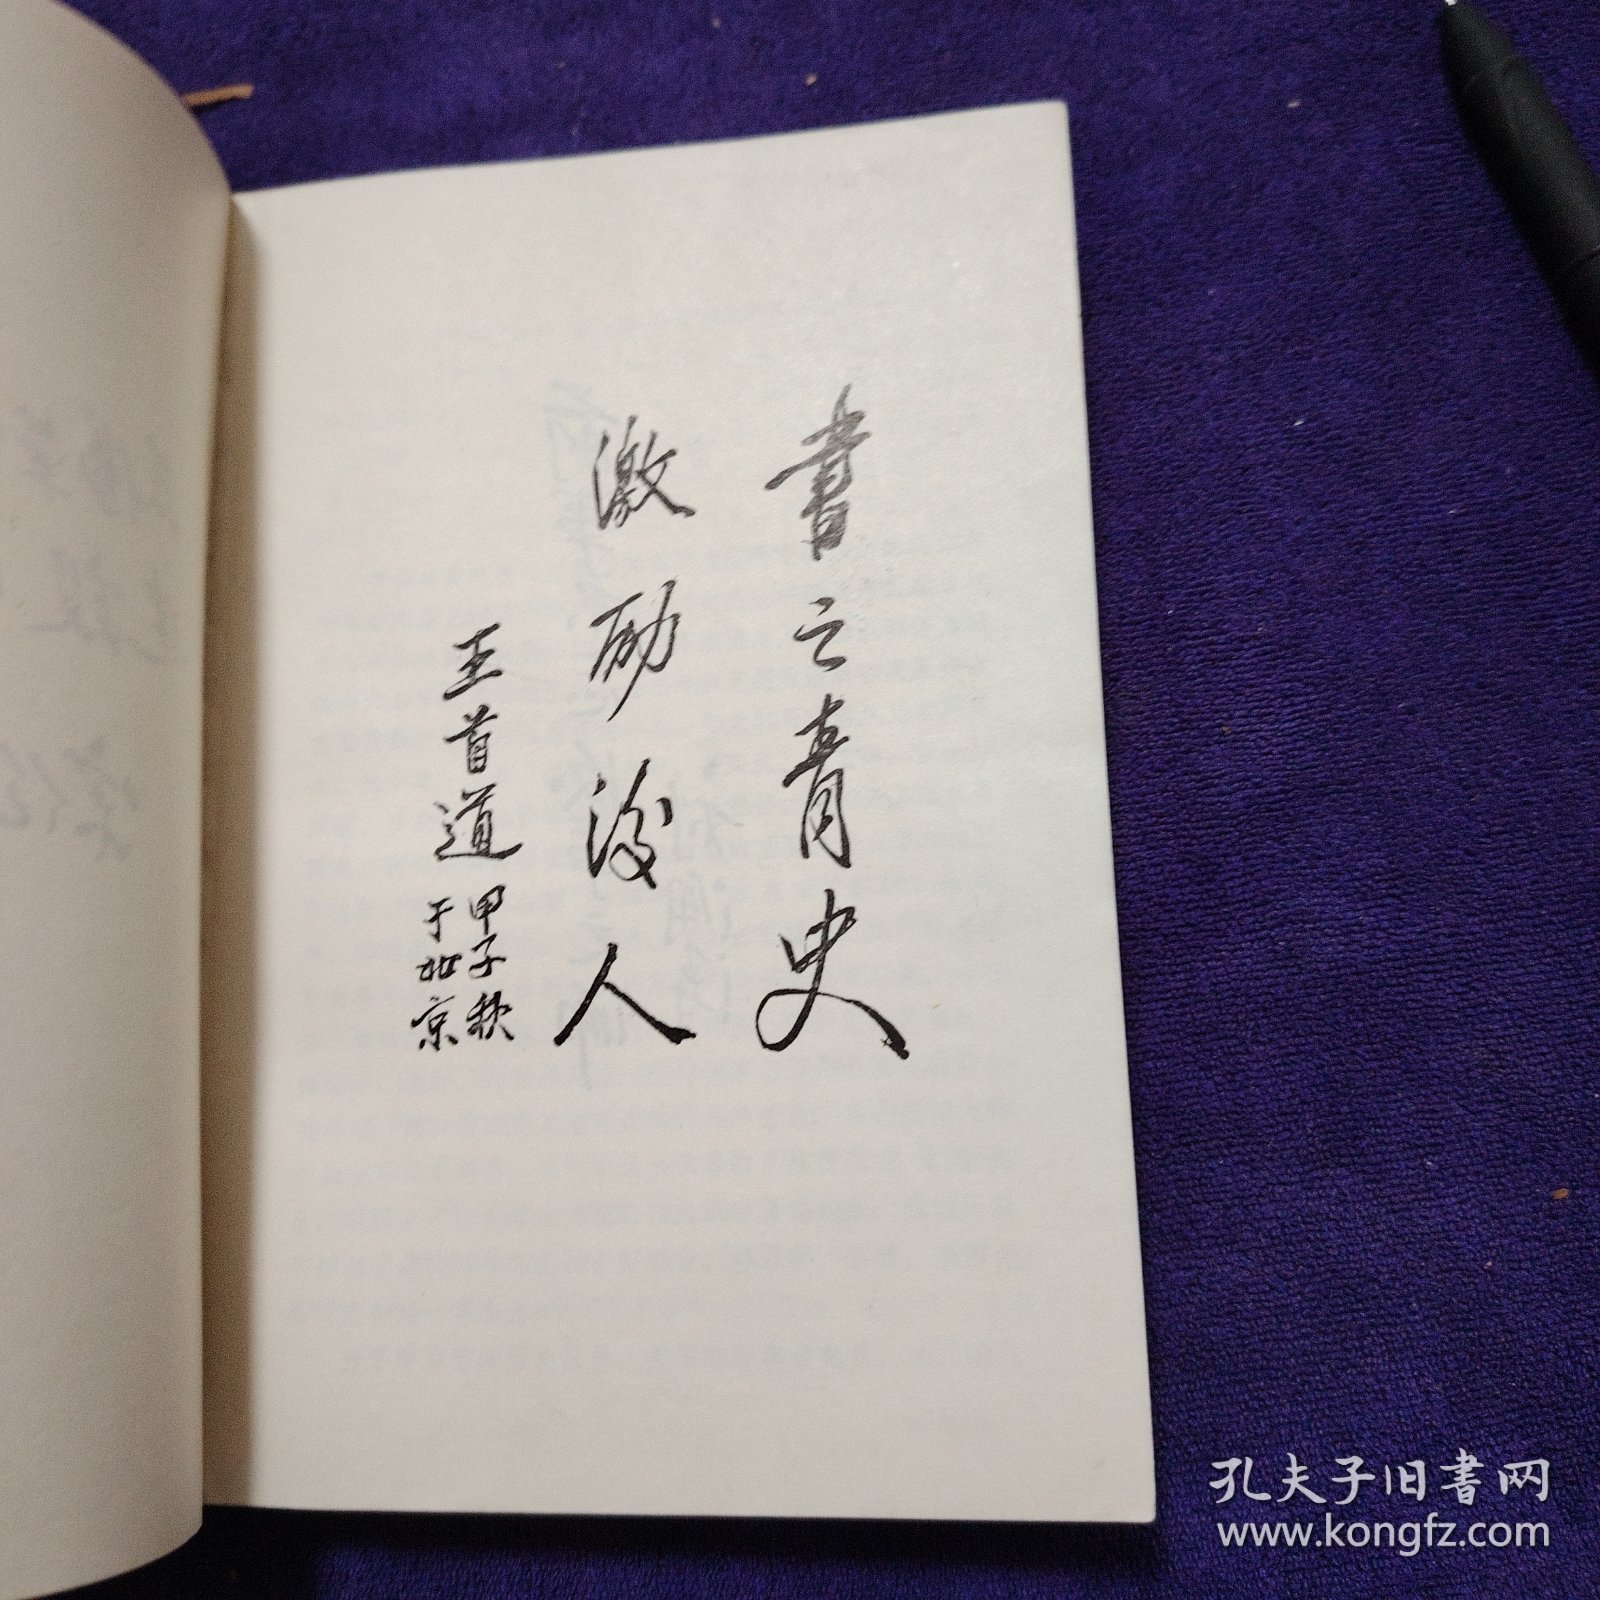 書之青史
激励後人
王首道
甲子秋
于北京
孔夫子旧書网
www.kongfz.com